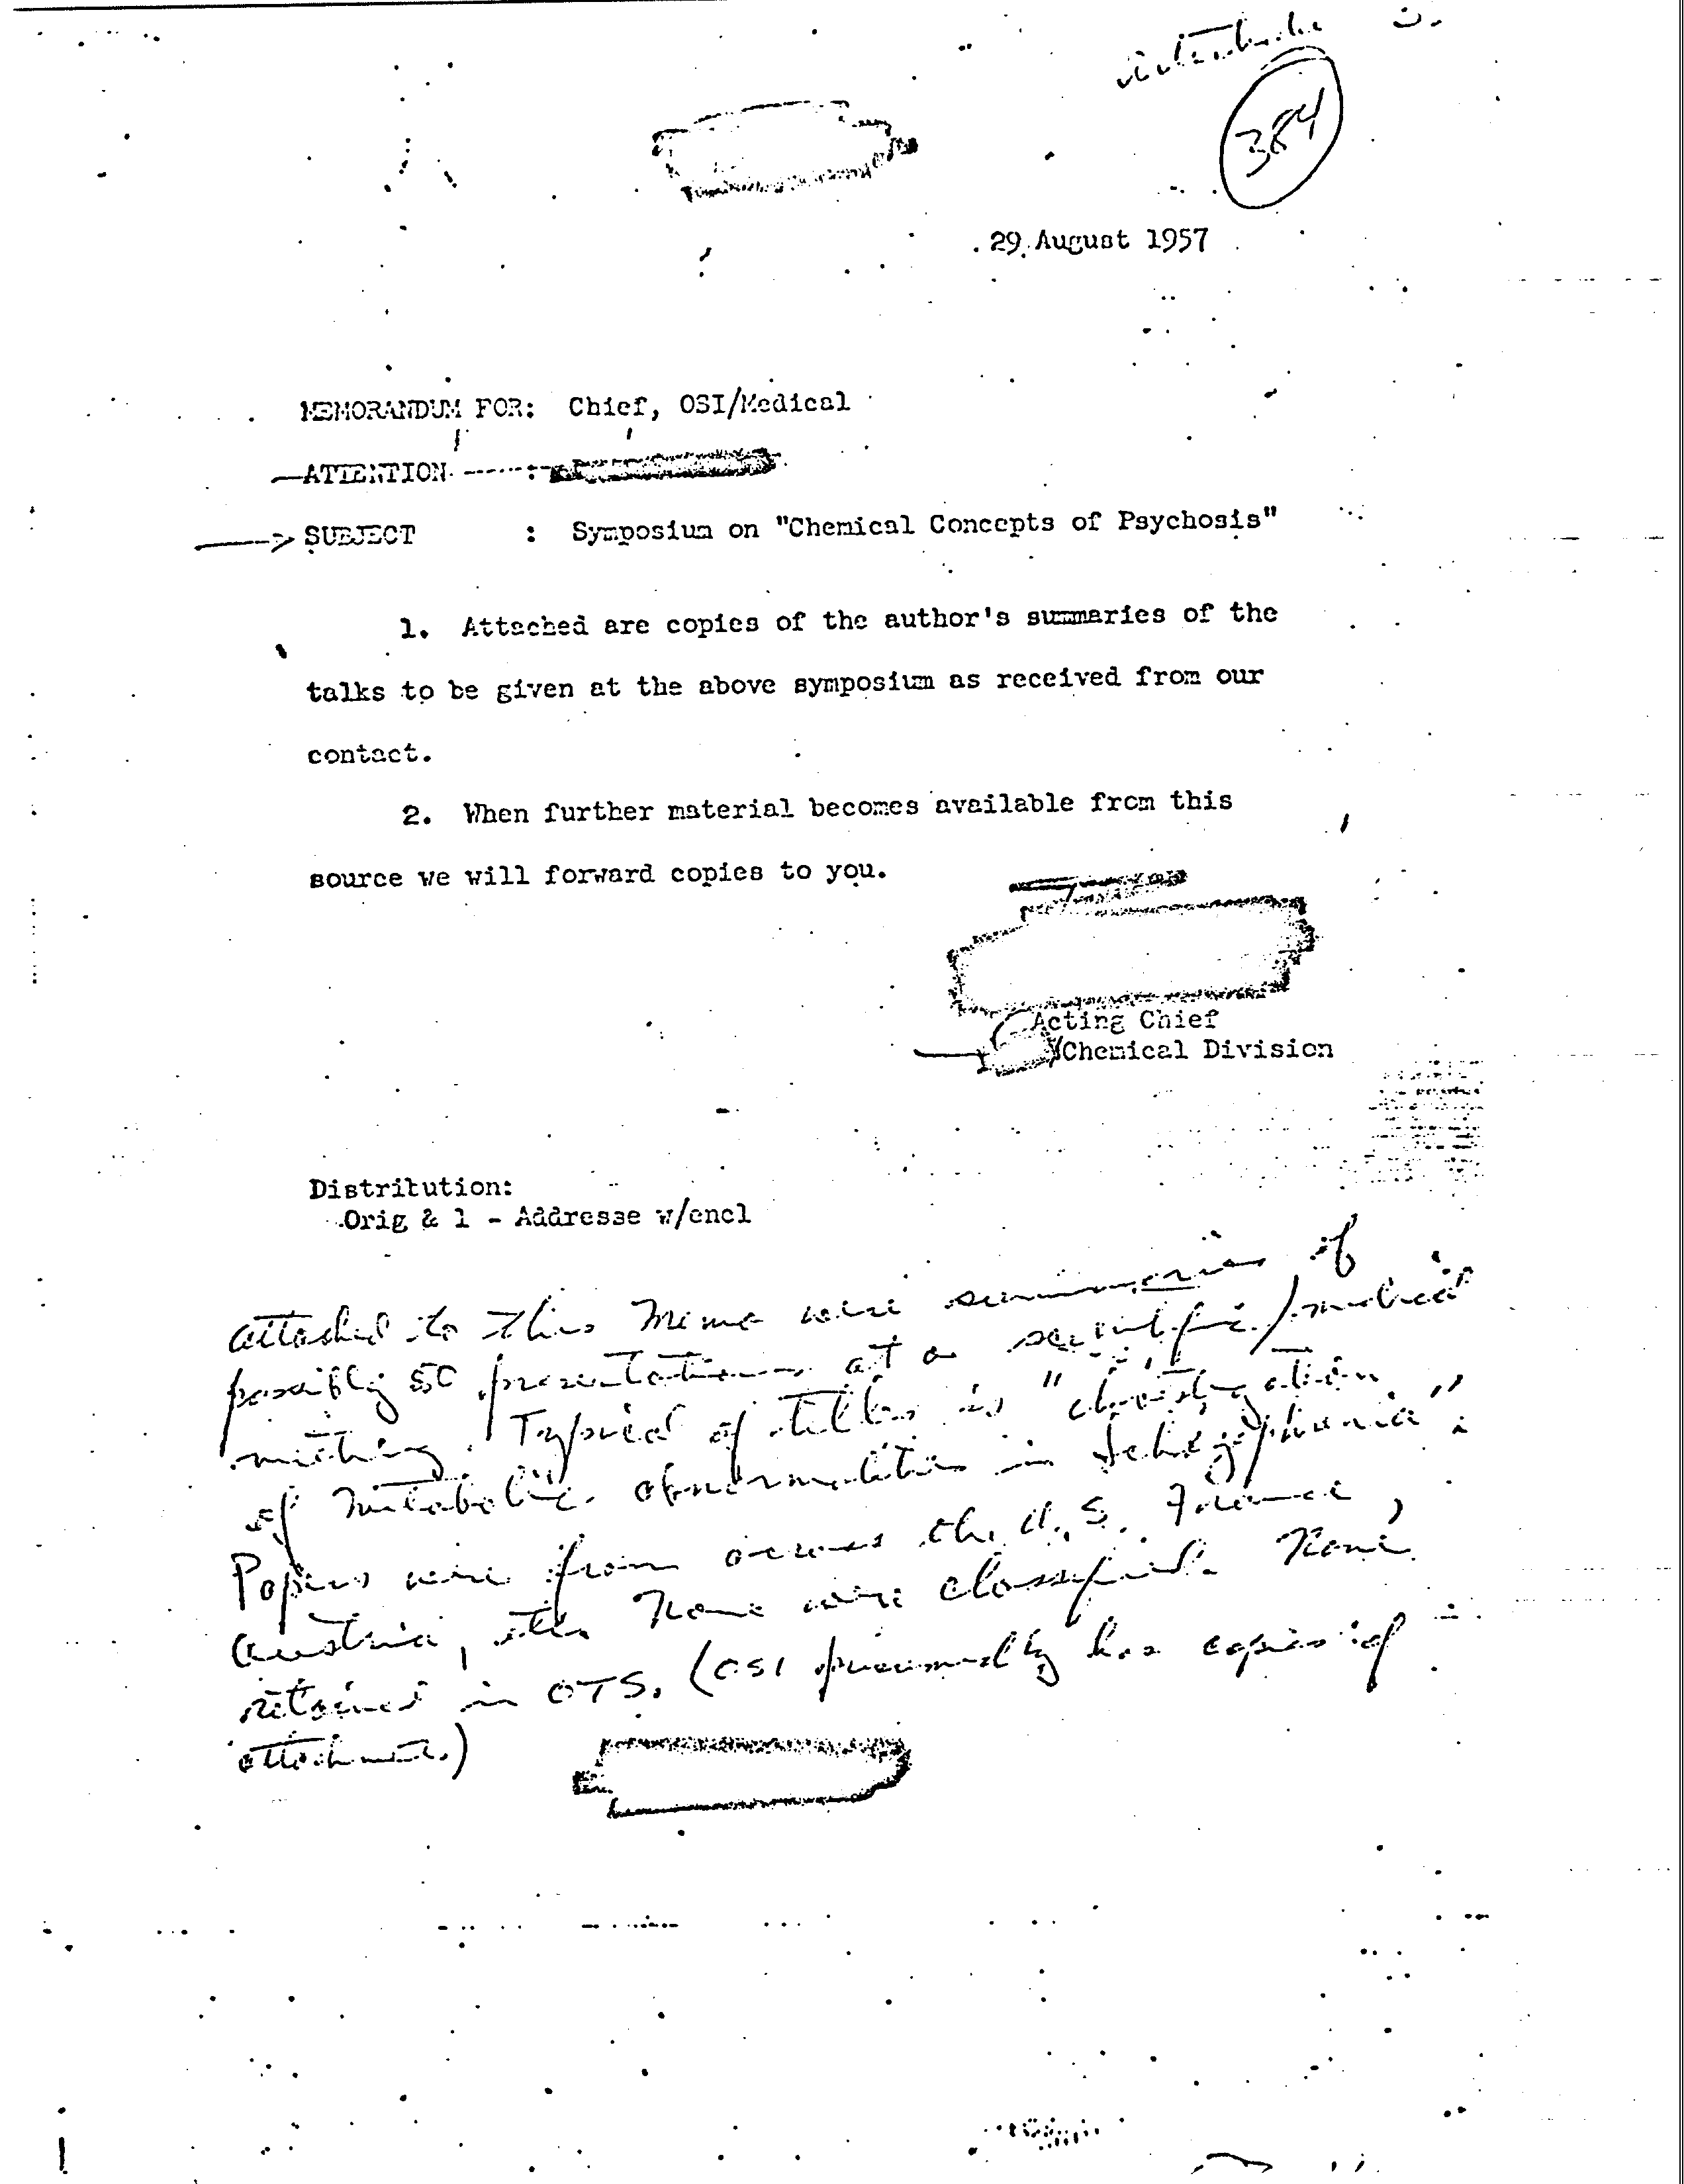 384
29 August 1957
MEMORANDUM FOR: Chief, OSI/Medical
ATTENTION :
SUBJECT : Symposium on "Chemical Concepts of Psychosis"
1. Attached are copies of the author's summaries of the
talks to be given at the above symposium as received from our
contact.
2. When further material becomes available from this
source we will forward copies to you.
Acting Chief
/Chemical Division
Distribution:
Orig & 1 - Addresse w/encl
attached to this memo were summaries of
possibly 50 presentations at a scientific/medical
meeting. Typical of titles is "
of metabolic abnormalities in Schizophrenia".
Papers were from across the U.S. France,
Austria, etc. None were classified. None
retained in OTS. (OSI presumably has copies of
attachment.)